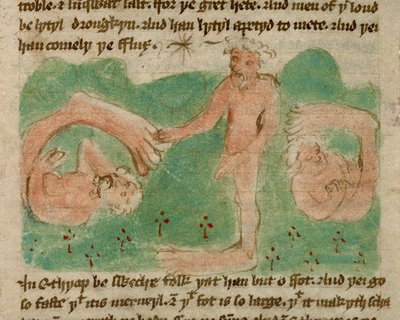 troble . & sūwhat salt . ffor ye gret hete . And men of yͭ lond
be lytyl drongkyn . And han lytyl apetyd to mete . And yei
han comely ye fflux .
In Ethyop be sweche folk yat han but o ffot . And yei go
so faste yͭ it is merveyl . & yͭ fot is so large . yͭ it makyth scha